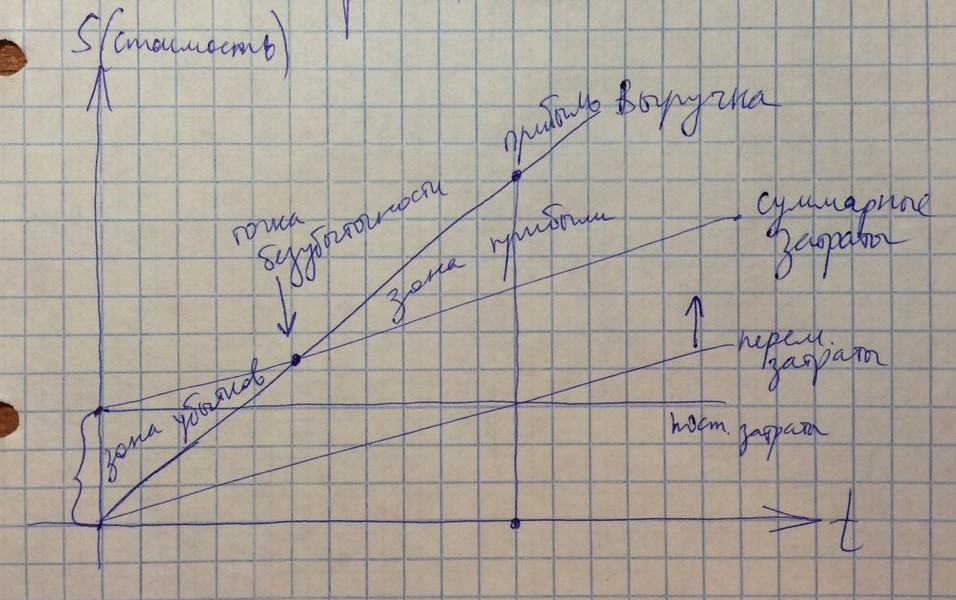 S (стоимость)
прибыль
Выручка
точка
безубыточности
зона прибыли
суммарные
затраты
зона убытков
перем.
затраты
пост. затраты
t